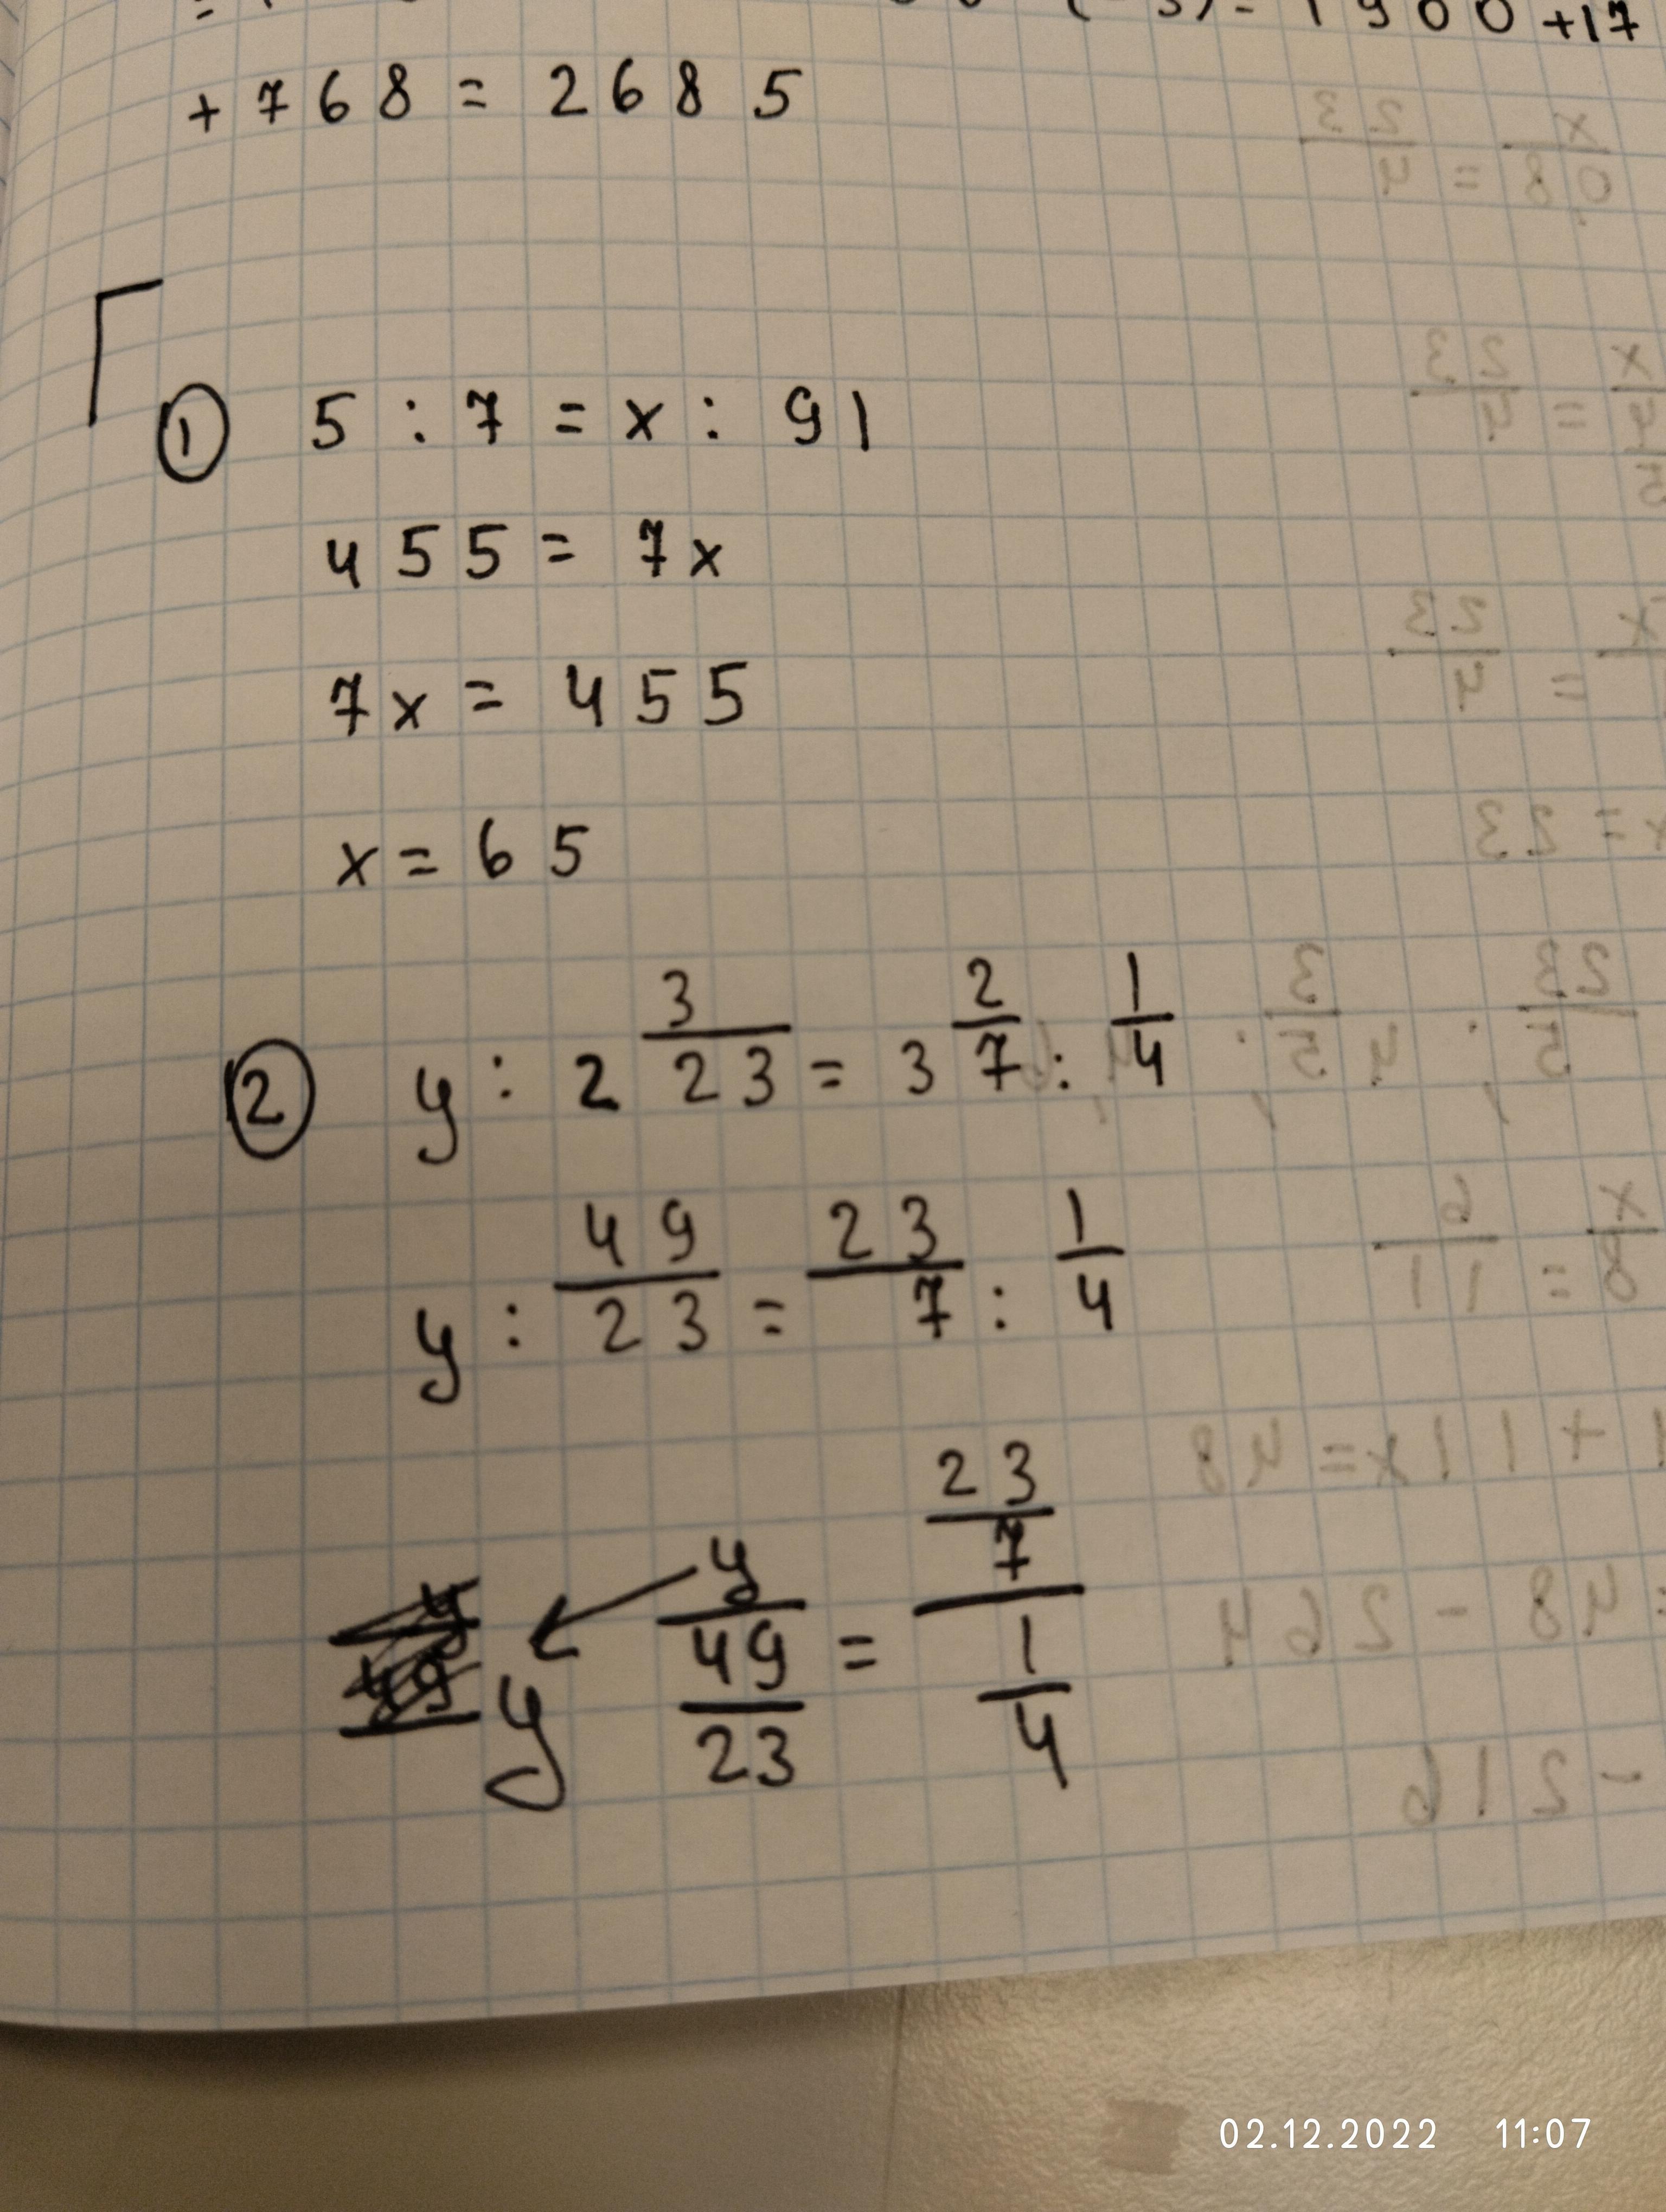 1900 +17
+768 = 2685
① 5 : 7 = x : 91
455 = 7x
7x = 455
x = 65
② y : 2 3/23 = 3 2/7 : 1/4
y : 49/23 = 23/7 : 1/4
y y/(49/23) = (23/7)/(1/4)
02.12.2022 11:07